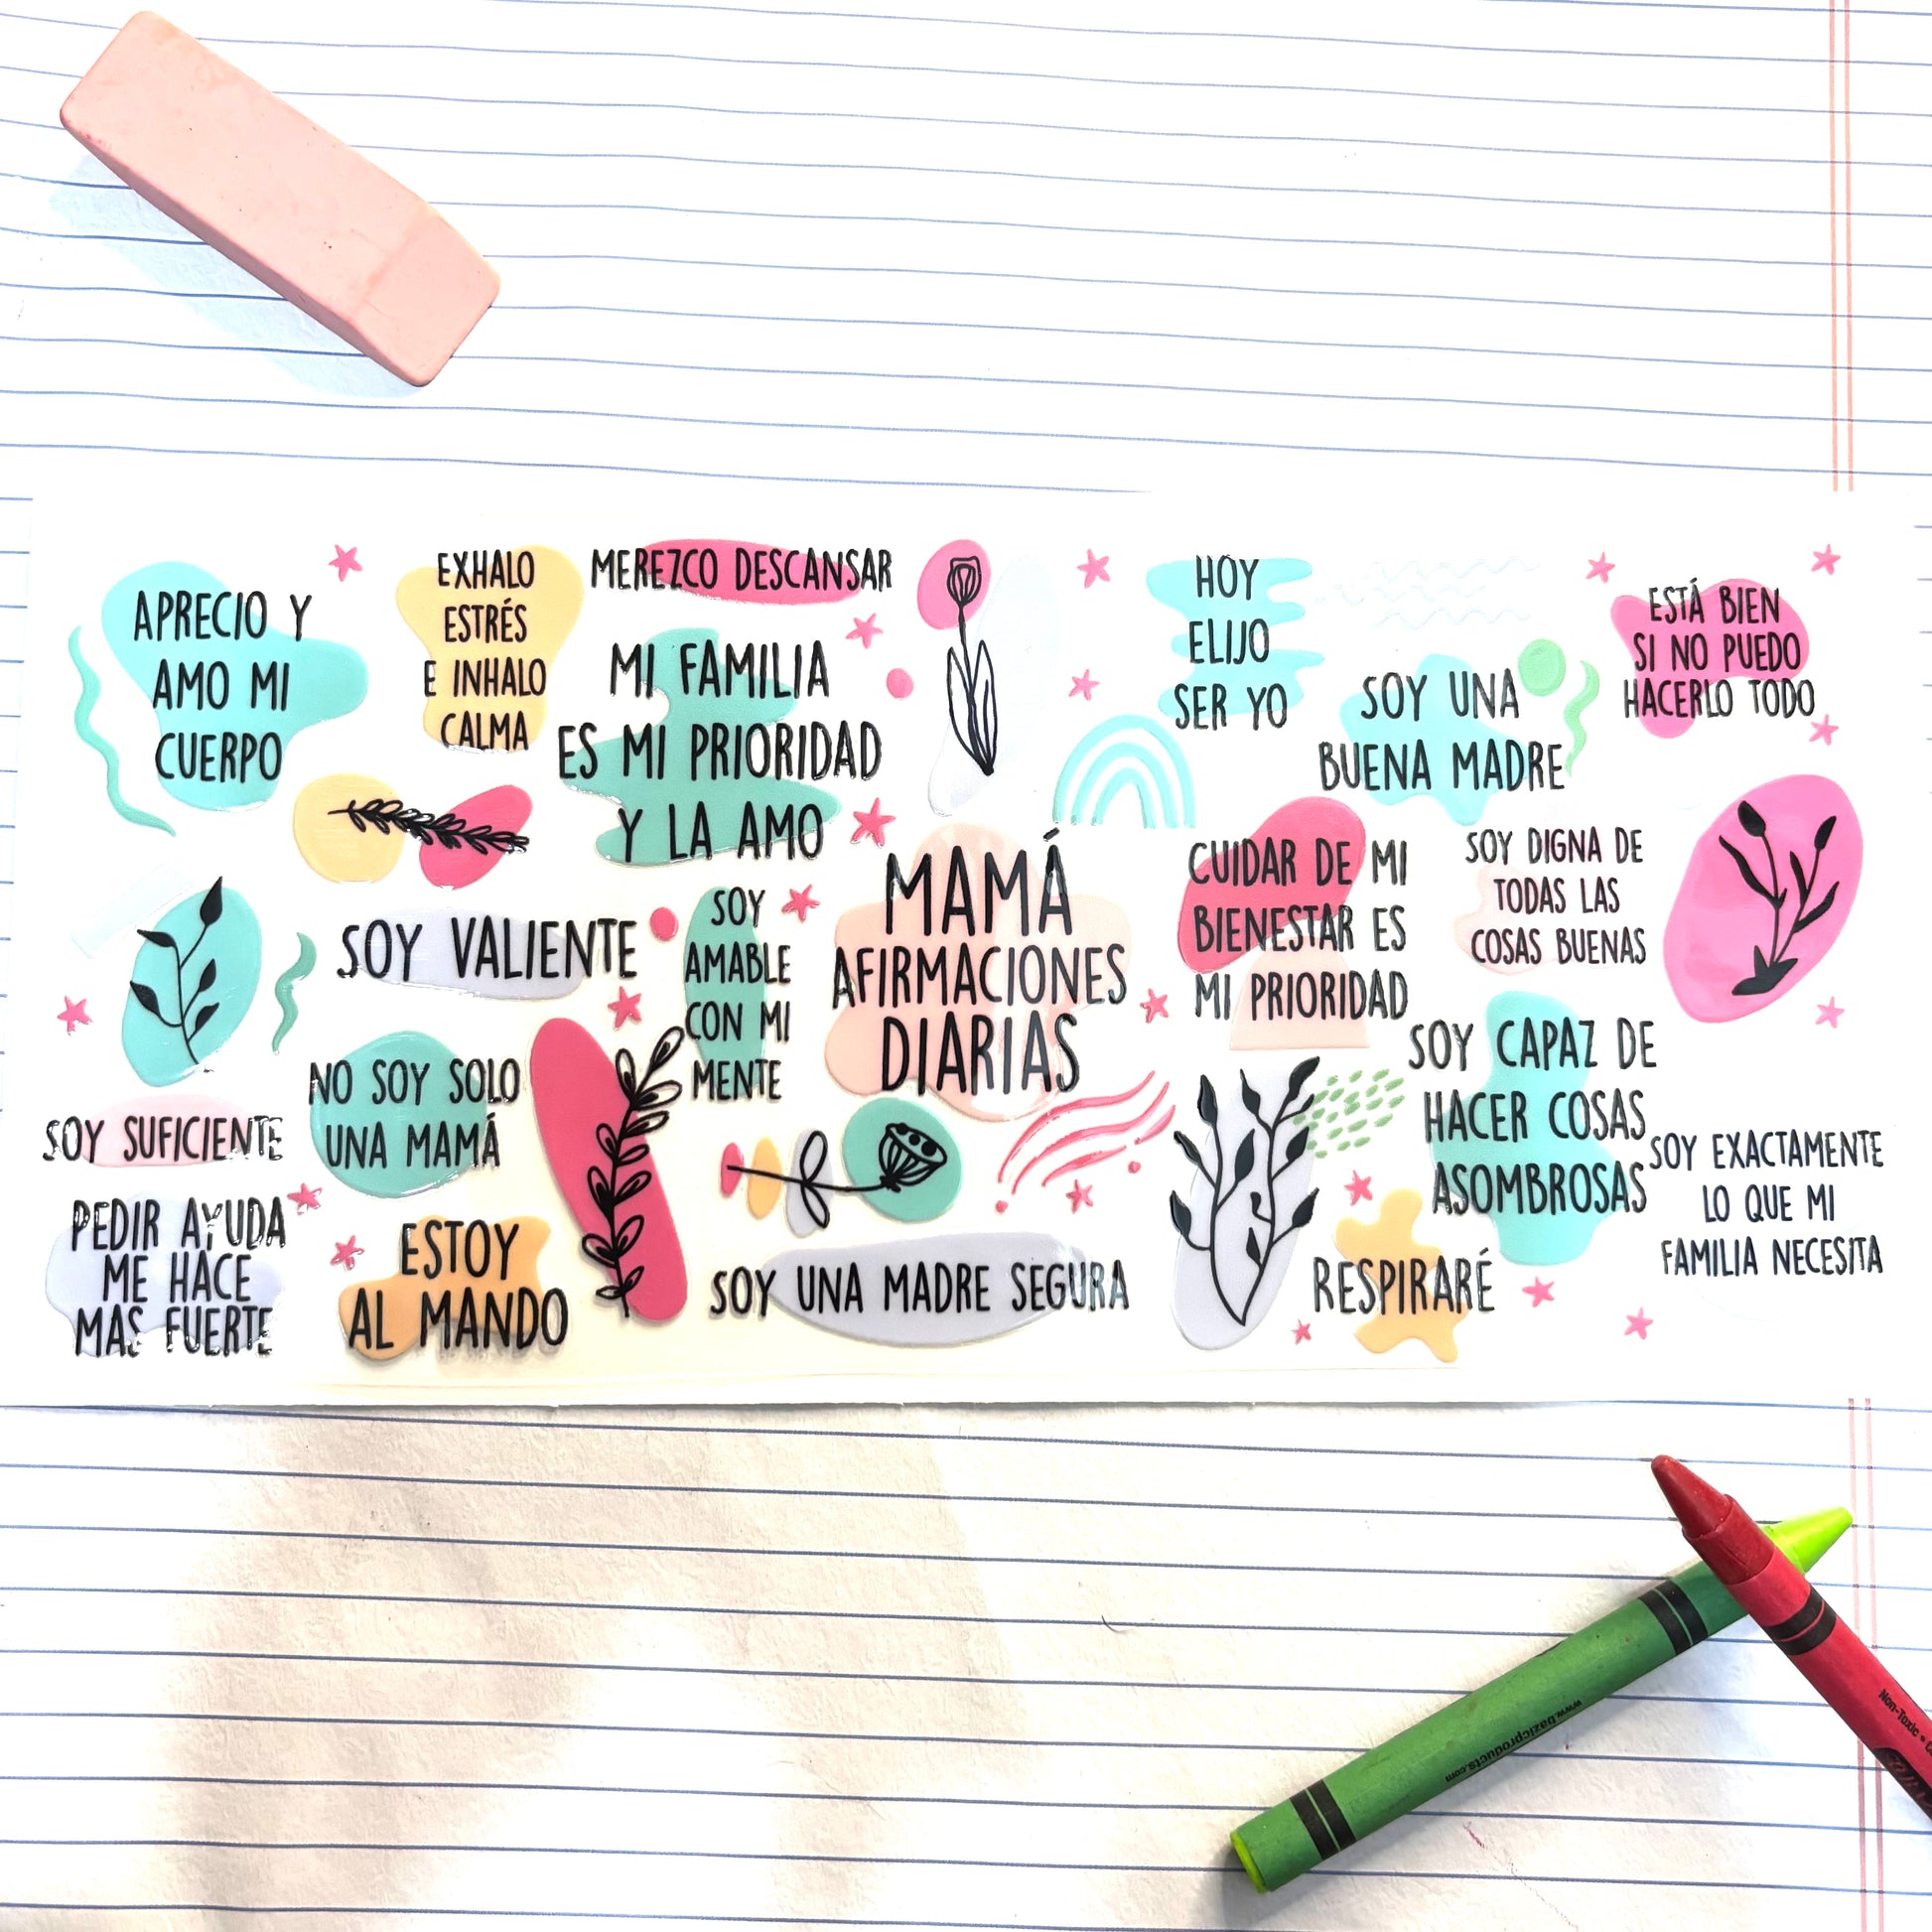 APRECIO Y
AMO MI
CUERPO
EXHALO
ESTRÉS
E INHALO
CALMA
MEREZCO DESCANSAR
MI FAMILIA
ES MI PRIORIDAD
Y LA AMO
HOY
ELIJO
SER YO
SOY UNA
BUENA MADRE
ESTÁ BIEN
SI NO PUEDO
HACERLO TODO
SOY VALIENTE
SOY
AMABLE
CON MI
MENTE
MAMÁ
AFIRMACIONES
DIARIAS
CUIDAR DE MI
BIENESTAR ES
MI PRIORIDAD
SOY DIGNA DE
TODAS LAS
COSAS BUENAS
SOY SUFICIENTE
NO SOY SOLO
UNA MAMÁ
SOY CAPAZ DE
HACER COSAS
ASOMBROSAS
SOY EXACTAMENTE
LO QUE MI
FAMILIA NECESITA
PEDIR AYUDA
ME HACE
MAS FUERTE
ESTOY
AL MANDO
SOY UNA MADRE SEGURA
RESPIRARÉ
www.bazicproducts.com
Non-Toxic